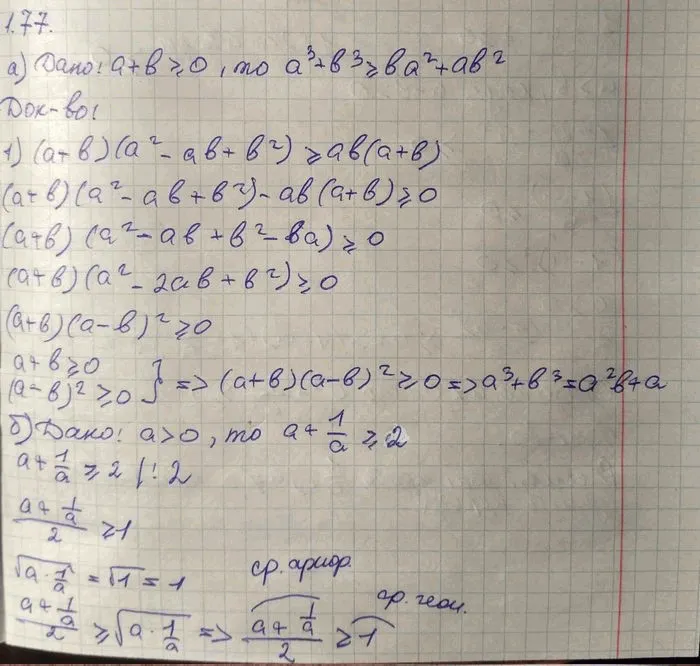 1.77.
а) Дано: a+b≥0, то a³+b³≥ba²+ab²
Док-во:
1) (a+b)(a²-ab+b²)≥ab(a+b)
(a+b)(a²-ab+b²)-ab(a+b)≥0
(a+b)(a²-ab+b²-ba)≥0
(a+b)(a²-2ab+b²)≥0
(a+b)(a-b)²≥0
a+b≥0
(a-b)²≥0 } => (a+b)(a-b)²≥0 => a³+b³=a²b+a
б) Дано: a>0, то a+1/a≥2
a+1/a≥2 |:2
(a+1/a)/2≥1
√(a·1/a)=√1=1
ср. арифм. ср. геом.
(a+1/a)/2≥√(a·1/a) => (a+1/a)/2≥1